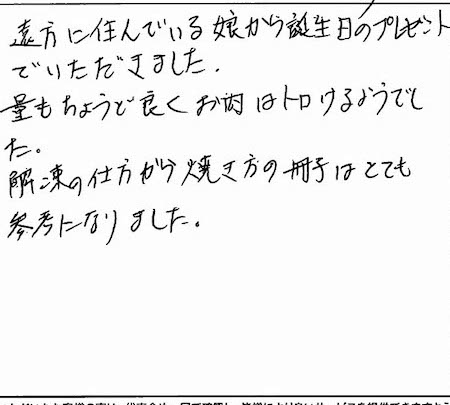 遠方に住んでいる娘から誕生日のプレゼント
でいただきました.
量もちょうど良くお肉はトロけるようでし
た。
解凍の仕方から焼き方の冊子はとても
参考になりました。